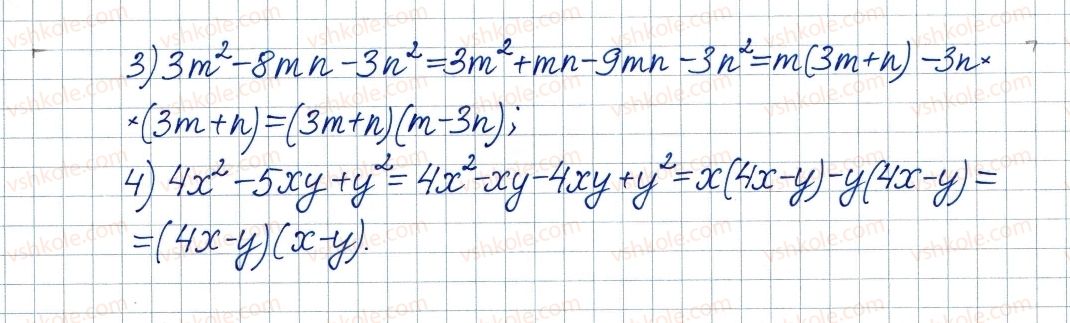 3) 3m² - 8mn - 3n² = 3m² + mn - 9mn - 3n² = m(3m + n) - 3n ×
× (3m + n) = (3m + n)(m - 3n);
4) 4x² - 5xy + y² = 4x² - xy - 4xy + y² = x(4x - y) - y(4x - y) =
= (4x - y)(x - y).